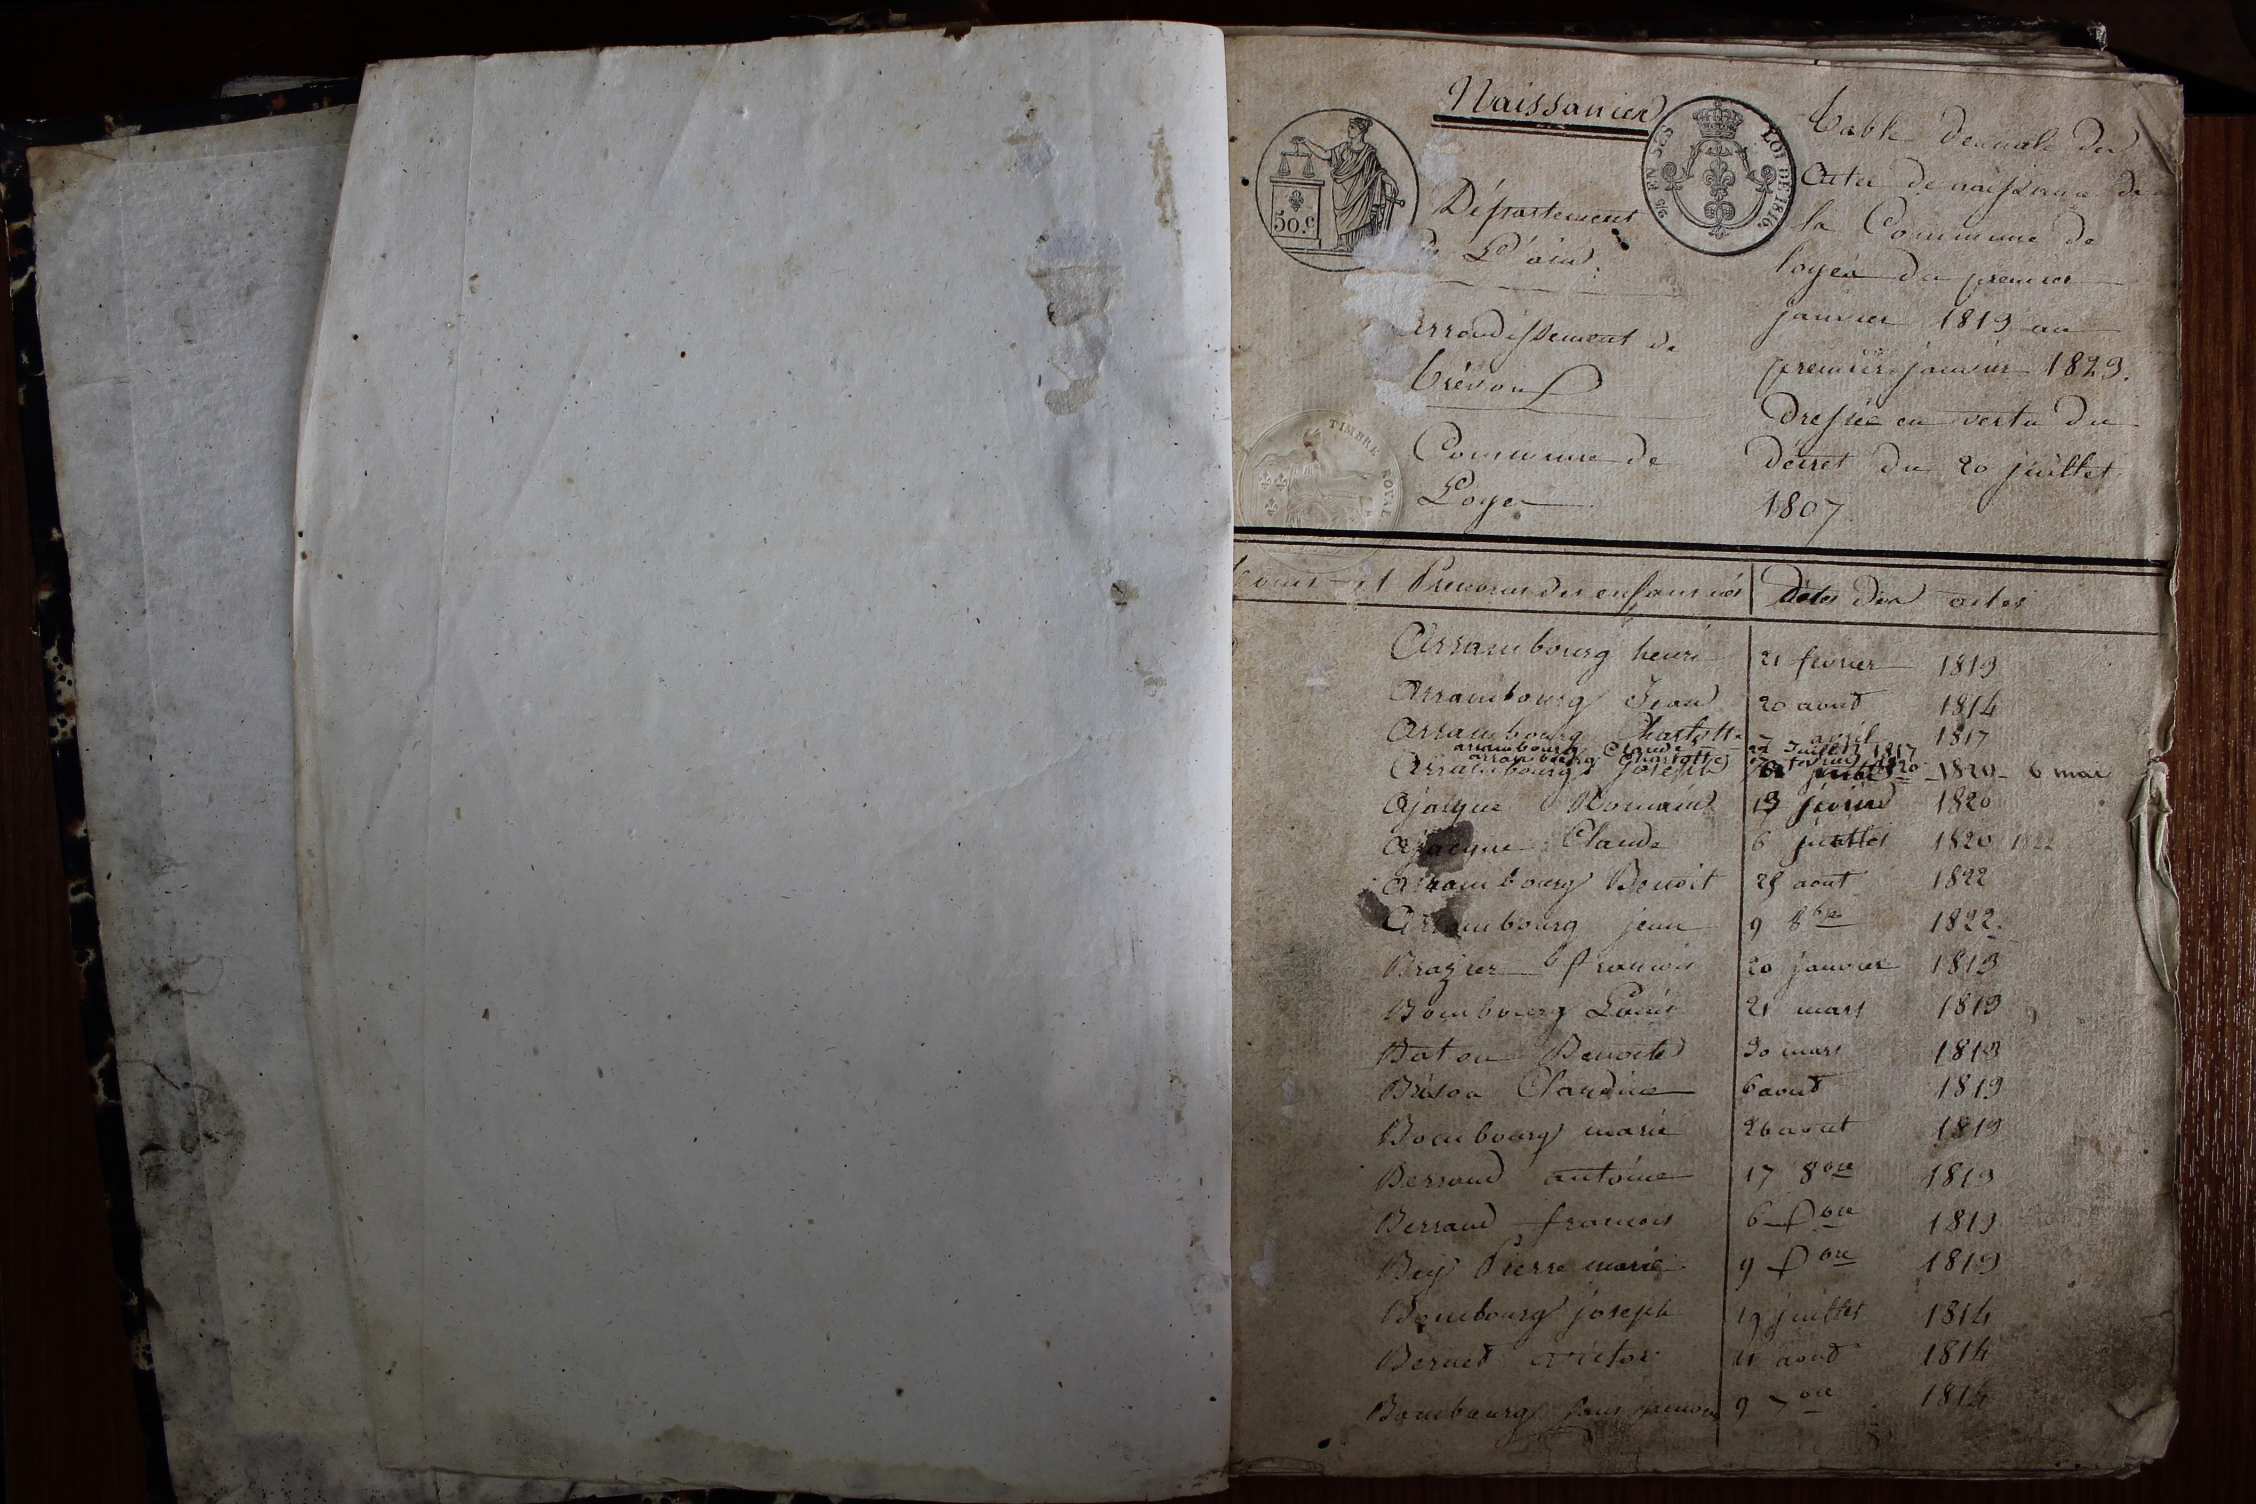 Naissances
50.C
SES GEN
LOI DE 1816.
Département
de L'ain
arrondissement de
trévoux
Commune de
Loyes
TIMBRE ROYAL
Table décennale des
actes de naissance de
la Commune de
loyes du premier
janvier 1813 au
premier janvier 1823.
dressée en vertu du
décret du 20 juillet
1807
Noms et Prenoms des enfans nés Dates des actes
Arrambourg henri 21 fevrier 1813
Arrambourg Jean 20 aout 1814
Arrambourg Charlotte 7 avril 1817
arrambourg Claude 22 Juillet 1817
arrambourg Charlotte fevrier 1820
Arrambourg joseph 1820 6 mai
Ajacque Romain 13 fevrier 1820
Ajacque Claude 6 juillet 1820 1822
Arrambourg Benoit 25 aout 1822
Arrambourg jean 9 8bre 1822
Brazier francois 20 janvier 1813
Bombourg Louis 21 mars 1813
Baton Benoite 30 mars 1813
Brison Claudine 6 aout 1813
Bombourg marie 26 aout 1813
Berraud antoine 17 8bre 1813
Berraud francois 6 1813
Bey Pierre marie 9 1813
Bombourg joseph 19 juillet 1814
Bernet victor 21 aout 1814
Bombourg sans prenom 9 7bre 1814